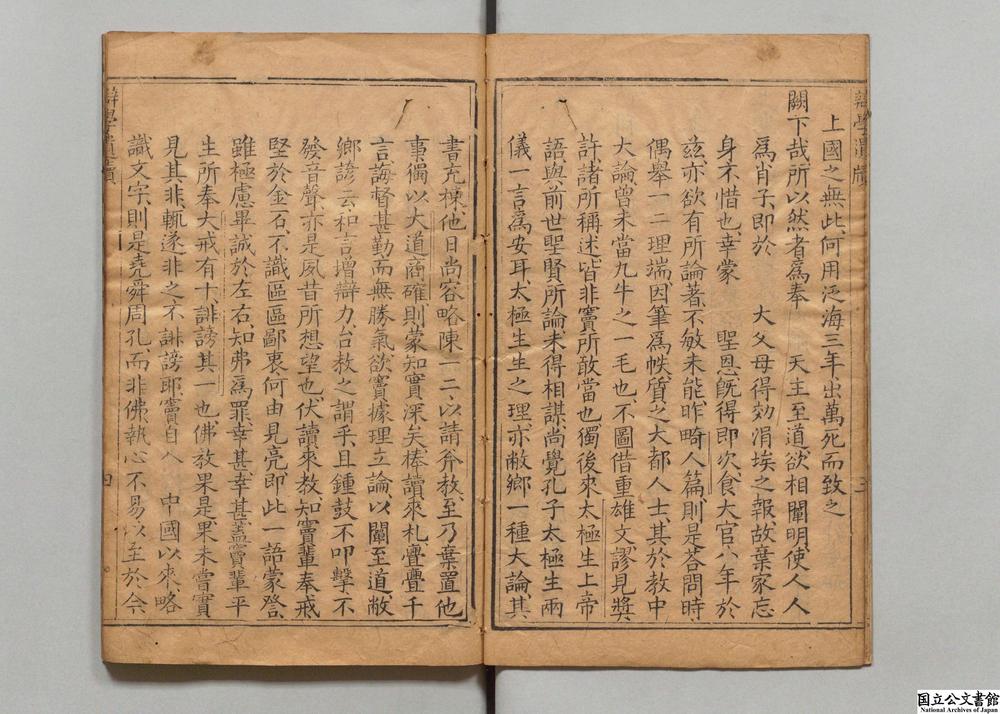 辯學遺牘
三
上國之無此何用泛海三年出萬死而致之
闕下哉所以然者爲奉　天主至道欲相闡明使人人
爲肖子即於　大父母得効涓埃之報故棄家忘
身不惜也幸蒙　聖恩既得即次食大官八年於
茲亦欲有所論著不敏未能昨畸人篇則是答問時
偶舉一二理端因筆爲帙質之大都人士其於教中
大論曾未當九牛之一毛也不圖借重雄文謬見獎
許諸所稱述皆非竇所敢當也獨後來太極生上帝
語與前世聖賢所論未得相謀尚覺孔子太極生兩
儀一言爲安耳太極生生之理亦敝鄉一種大論其
書充棟他日尚容略陳一二以請斧教至乃棄置他
事獨以大道商確則蒙知實深矣捧讀來札亹亹千
言誨督甚勤而無勝氣欲竇據理立論以闡至道敝
鄉諺云和言增辯力台教之謂乎且鍾鼓不叩擊不
發音聲亦是夙昔所想望也伏讀來教知竇輩奉戒
堅於金石不識區區鄙衷何由見亮即此一語蒙登
雖極慮畢誠於左右知弗爲罪幸甚幸甚蓋竇輩平
生所奉大戒有十誹謗其一也佛教果是果未嘗實
見其非輒遂非之不誹謗耶竇自入　中國以來略
識文字則是堯舜周孔而非佛執心不易以至於今
辯學遺牘
四
国立公文書館
National Archives of Japan